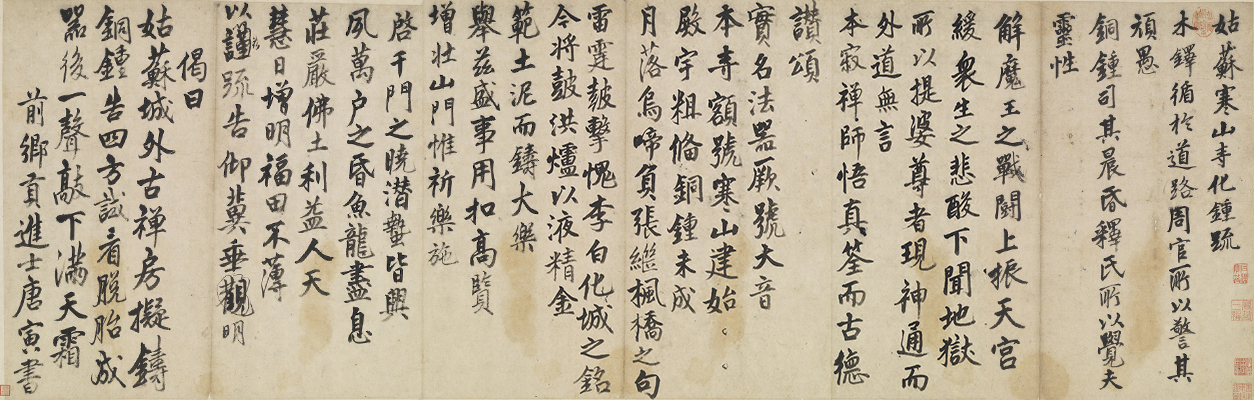 姑蘇寒山寺化鍾疏
木鐸循於道路周官所以警其
頑愚
銅鍾司其晨昏釋氏所以覺夫
靈性
解魔王之戰鬪上振天宮
緩衆生之悲酸下聞地獄
所以提婆尊者現神通而
外道無言
本寂禪師悟真筌而古德
讃頌
實名法噐厥號大音
本寺額號寒山建始
殿宇粗俻銅鍾未成
月落烏啼負張繼楓橋之句
雷霆皷擊愧李白化城之銘
今將皷洪爐以液精金
範土泥而鑄大樂
舉茲盛事用扣高賢
增壮山門惟祈樂施
啓千門之曉潛蟄皆興
夙萬户之昏魚龍盡息
莊嚴佛土利益人天
慧日增明福田不薄
以謹疏告仰冀垂觀明
偈曰
姑蘇城外古禅房擬鑄
銅鍾告四方試看脫胎成
噐後一聲敲下满天霜
前鄉貢進士唐寅書